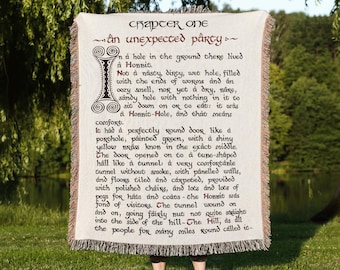 CHAPTER ONE
~ AN UNEXPECTED PARTY ~
In a hole in the ground there lived
a Honnit.
Not a nasty, dirty, wet hole, filled
with the ends of worms and an
oozy smell, nor yet a dry, bare,
sandy hole with nothing in it to
sit down on or to eat: it was
a Honnit-Hole, and that means
comfort.
It had a perfectly round door, like a
porthole, painted green, with a shiny
yellow brass knob in the exact middle.
The door opened on to a tube-shaped
hall like a tunnel: a very comfortable
tunnel without smoke, with panelled walls,
and floors tiled and carpeted, provided
with polished chairs, and lots and lots of
pegs for hats and coats - the Honnit was
fond of visitors. The tunnel wound on
and on, going fairly but not quite straight
into the side of the hill - The Hill, as all
the people for many miles round called it -